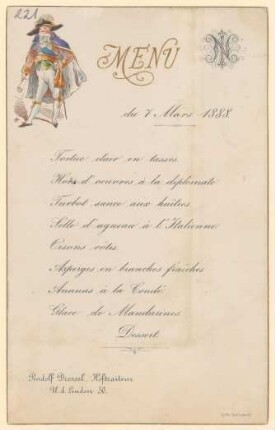 221
MENU
N
du 7 Mars 1888.
Tortue clair en tasses
Hors d'oeuvres à la diplomate
Turbot sauce aux huîtres
Selle d'agneau à l'Italienne
Oisons rôtis
Asperges en branches fraîches
Ananas à la Condé
Glace de Mandarines
Dessert.
Rudolf Dressel, Hoftraiteur
U. d. Linden 50.